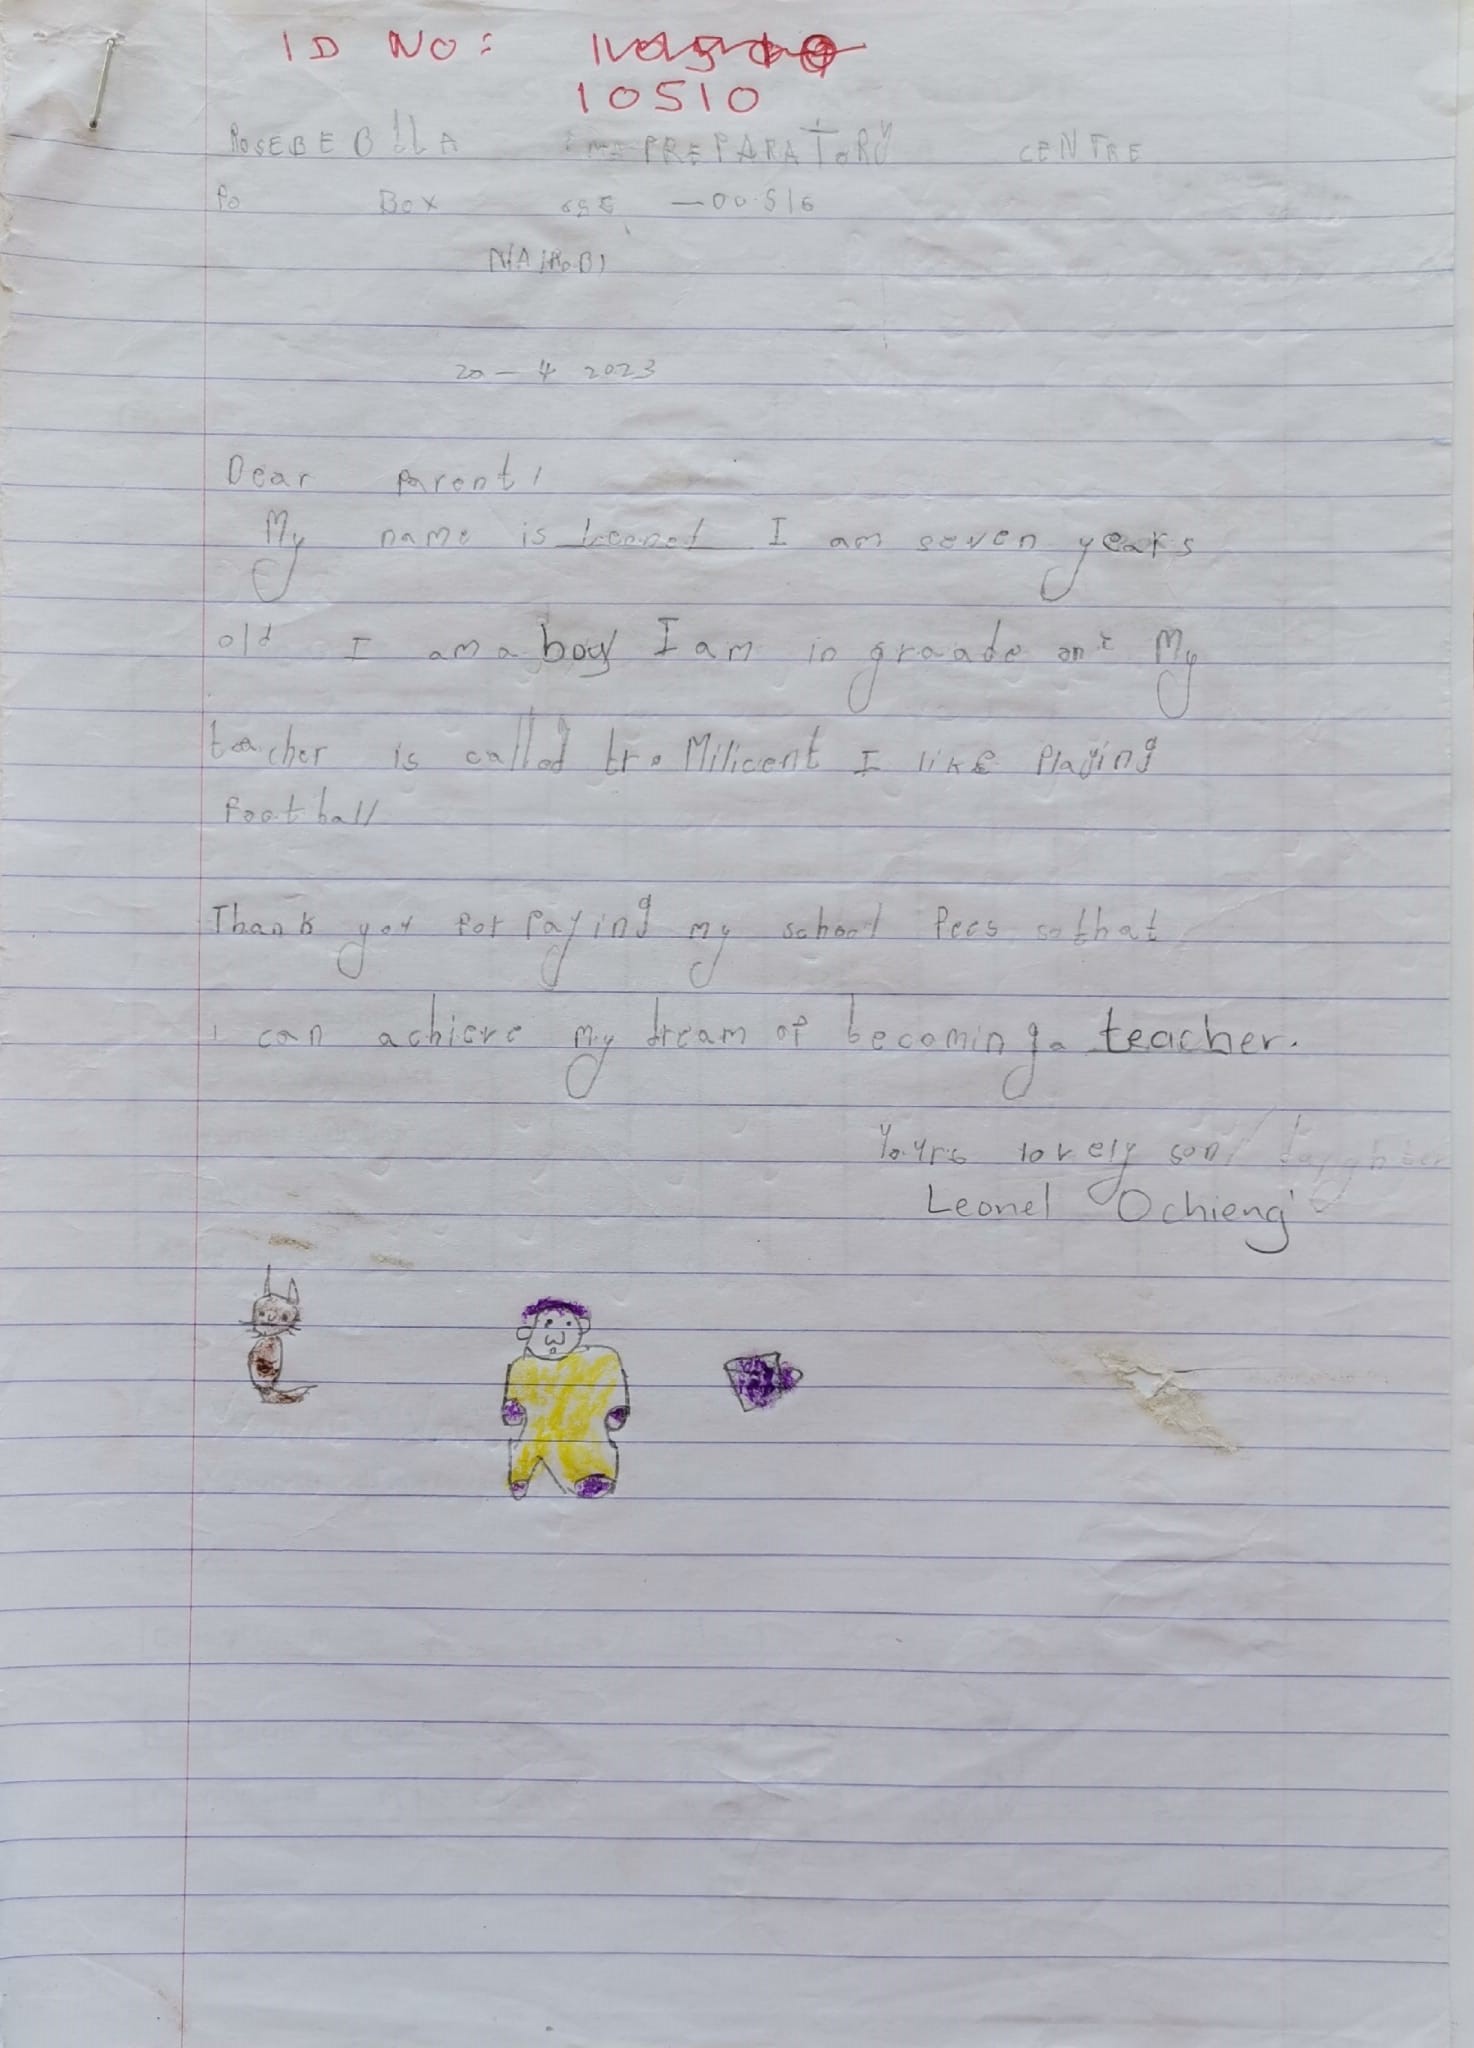 ID NO:
10510
ROSEBEBILLA PREPARATORY CENTRE
Po Box -00516
NAIROBI
20 - 4 2023
Dear parent,
My name is I am seven years
old I am a boy I am in graade one My
teacher is called tr. Milicent I like Playing
football
Thank you for Paying my school fees so that
i can achieve my dream of becoming a teacher.
Yours lovely son/ daughter
Leonel Ochieng'